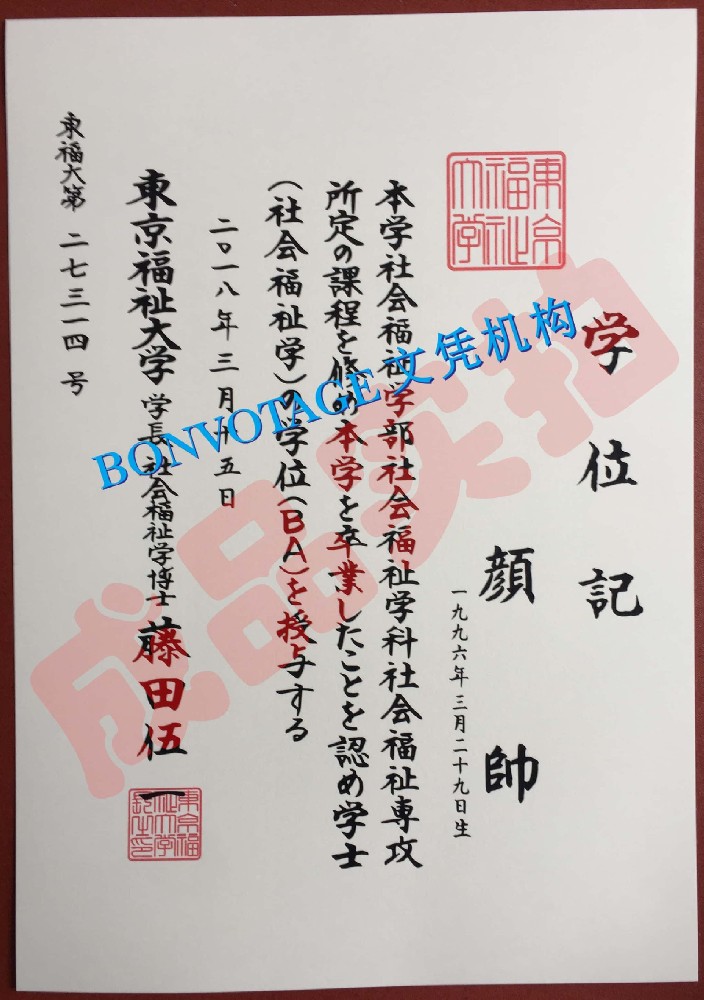 学位記
顔帥
一九九六年三月二十九日生
東京福祉大学
本学社会福祉学部社会福祉学科社会福祉専攻
所定の課程を修め本学を卒業したことを認め学士
(社会福祉学)の学位(BA)を授与する
二〇一八年三月十五日
東京福祉大学 学長 社会福祉学博士 藤田伍一
東福大第 二七三一四 号
BONVOTAGE文凭机构
成品实拍